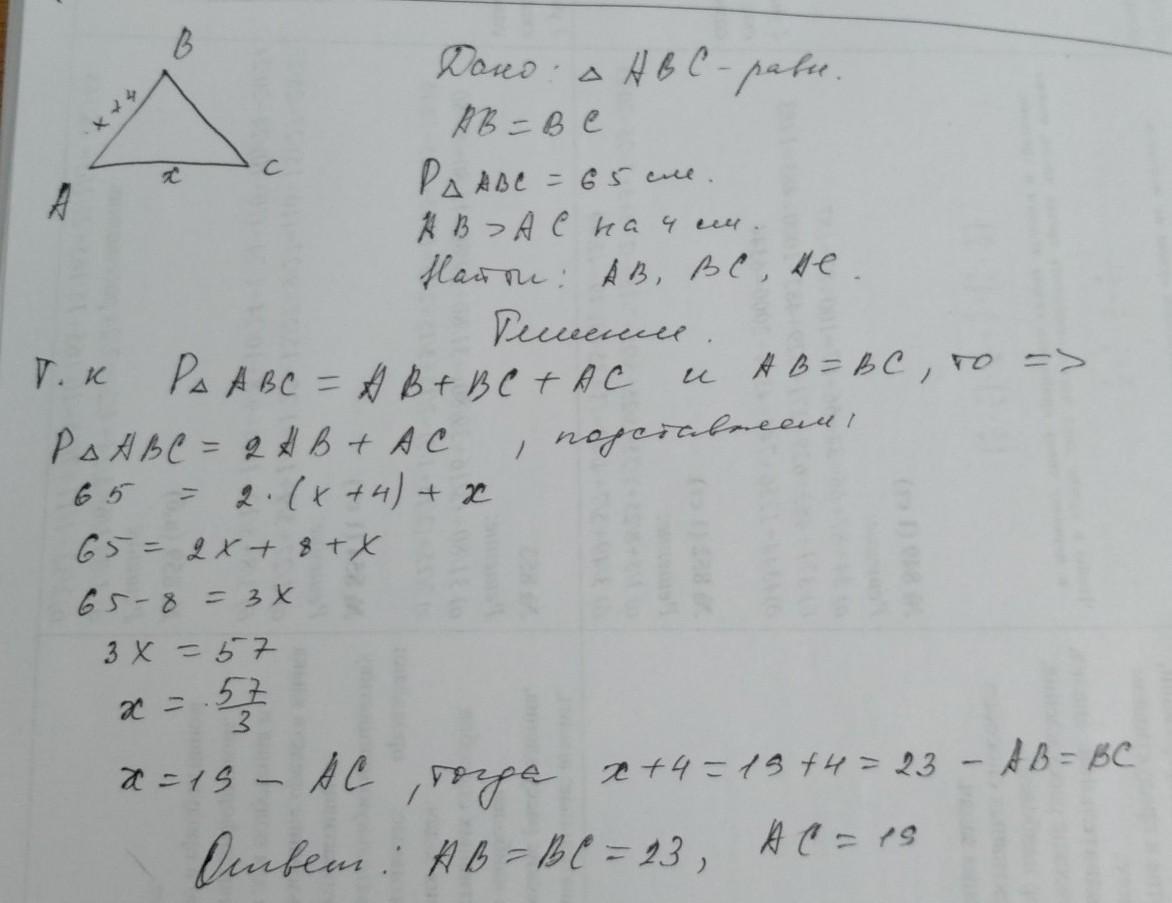 B
x+4
A
x
C
Дано: △ ABC - равн.
AB = BC
P△ ABC = 65 см.
AB > AC на 4 см.
Найти: AB, BC, AC.
Решение.
Т. к P△ ABC = AB + BC + AC и AB = BC, то =>
P△ ABC = 2 AB + AC , подставляем,
65 = 2 · (x + 4) + x
65 = 2x + 8 + x
65 - 8 = 3x
3x = 57
x = 57/3
x = 19 - AC , тогда x + 4 = 19 + 4 = 23 - AB = BC
Ответ: AB = BC = 23, AC = 19